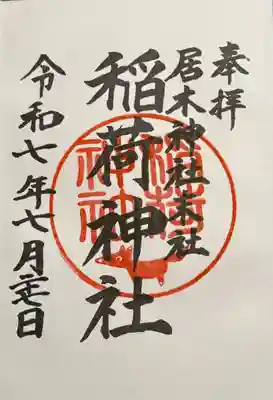 奉拝
居木神社末社
稲荷神社
令和七年七月廿七日
稲荷
神社